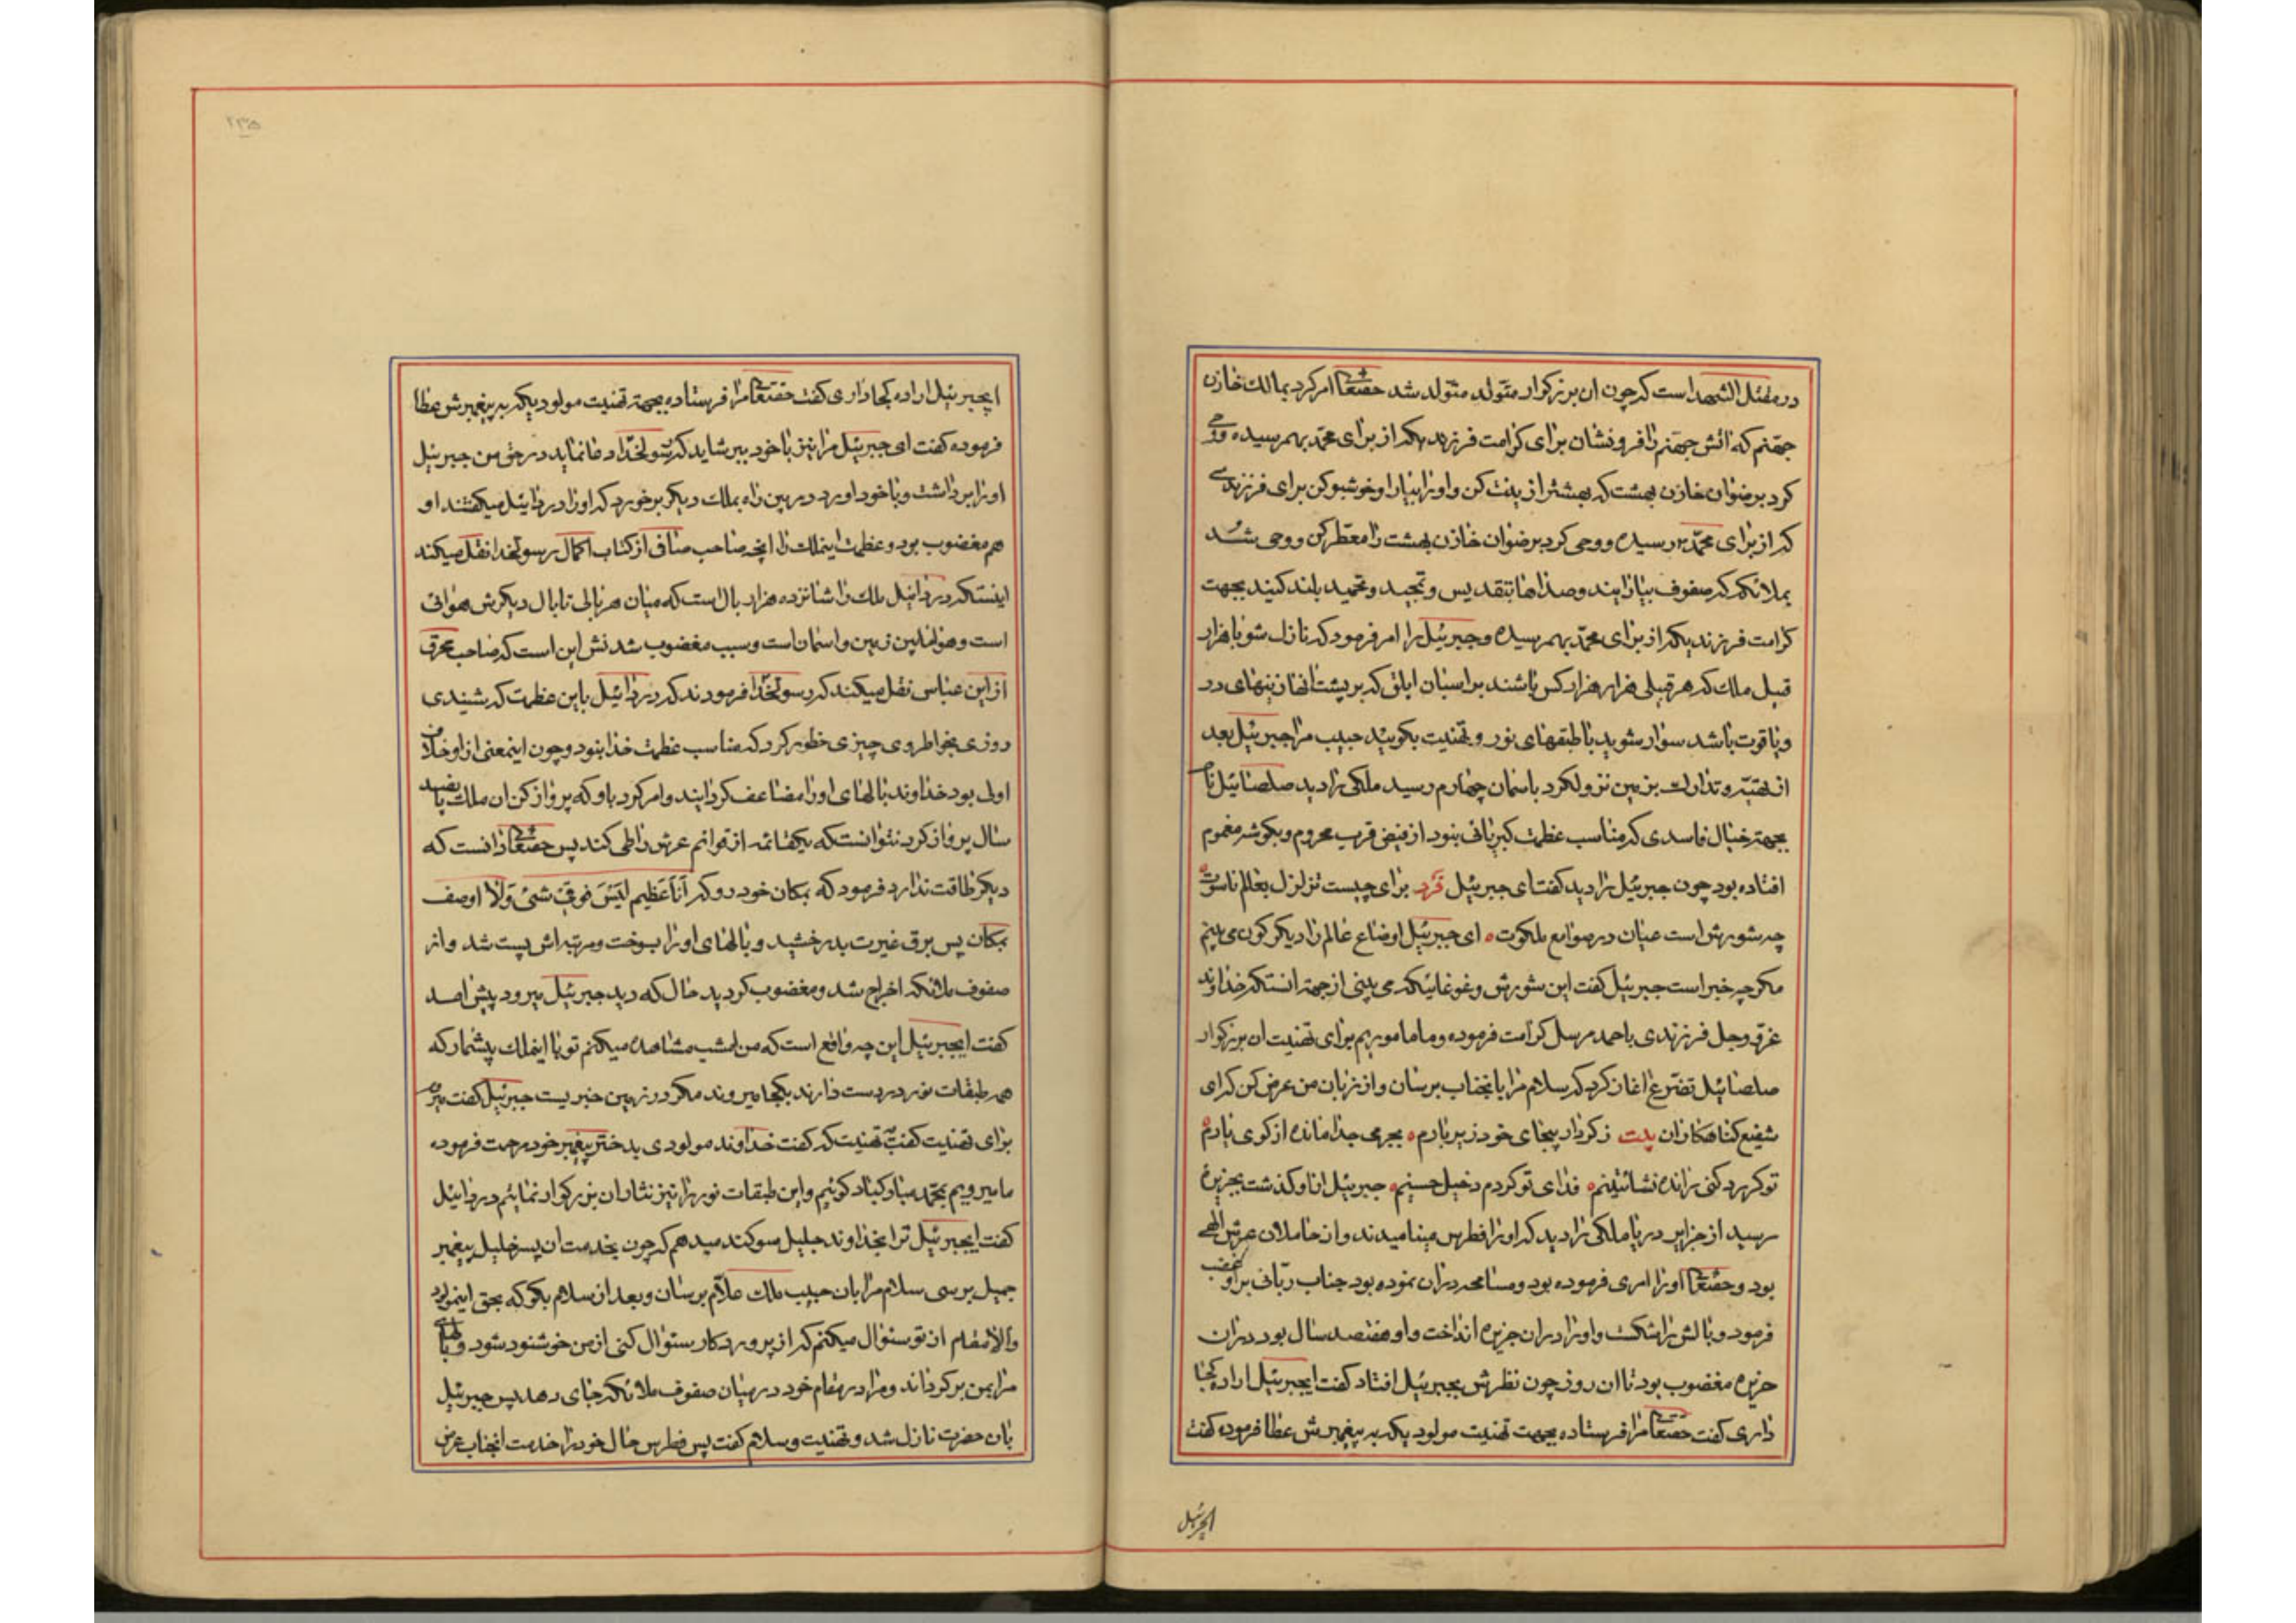 در مقتل الشهدا است که چون ان بزرکوار متولد متولد شد حقتعا امر کرد بمالک خازن
جهنم که اتش جهنم را فرونشان برای کرامت فرزندیکه از برای محمد بهمرسیده و وحی
کرد برضوان خازن بهشت که بهشترا زینت کن و او را بیارا و خوشبو کن برای فرزندی
که از برای محمد رسیده و وحی کرد برضوان خازن بهشت را معطر کن و وحی شد
بملائکه که صفوف بیارایند و صداها بتقدیس و تمجید و تحمید بلند کنید بجهت
کرامت فرزندیکه از برای محمد بهمرسیده و جبرئیل را امر فرمود که نازل شو با هزار
قبیل ملک که هر قبیلی هزار هزار کس باشند بر اسبان ابلق که بر پشت انها زینهای در
و یاقوت باشد سوار شوید با طبقهای نور و تهنیت بکوئید حبیب مرا جبرئیل بعد
از تهیه و تدارک بزمین نزولکرد باسمان چهارم رسید ملکی را دید صلصائیل نام
بجهة خیال فاسدی که مناسب عظمت کبریائی نبود از فیض قرب محروم و بکوشه مغموم
افتاده بود چون جبرئیل را دید کفت ای جبرئیل فرد برای چیست تزلزل بعالم ناسوت
چه شورش است عیان در صوامع ملکوت ای جبرئیل اوضاع عالم را دیکرکون می بینم
مکر چه خبر است جبرئیل کفت این شورش و غوغائیکه می بینی از جهة انستکه خداوند
عز و جل فرزندی باحمد مرسل کرامت فرموده و ما ماموریم برای تهنیت ان بزرکوار
صلصائیل تضرع اغاز کرد که سلام مرا بانجناب برسان و از زبان من عرض کن که ای
شفیع کناهکاران بیت ز کردار بیجای خود زیر بارم بجرمی جدا مانده از کوی یارم
تو کر رد کنی رانده نشائتینم فدای تو کردم دخیل حسینم جبرئیل از او کذشت بجزیرهٔ
رسید از جزایر دریا ملکی را دید که او را فطرس مینامیدند و از حاملان عرش الهی
بود و حقتعا او را امری فرموده بود و مسامحه دران نموده بود جناب ربانی بر او غضب
فرمود و بالش را شکست و او را دران جزیره انداخت و او هفتصد سال بود دران
جزیره مغضوب بود تا ان روز چون نظرش بجبرئیل افتاد کفت ایجبرئیل اراده کجا
داری کفت حقتعا مرا فرستاده بجهت تهنیت مولودیکه به پیغمبرش عطا فرموده کفت
ایجبرئیل
۲۳۵
ایجبرئیل اراده کجا داری کفت حقتعا مرا فرستاده بجهة تهنیت مولودیکه به پیغمبرش عطا
فرموده کفت ای جبرئیل مرا نیز با خود ببر شاید که رسولخدا دعا نماید در حق من جبرئیل
او را برداشت و با خود اورد در بین راه بملک دیکر برخورد که او را دردائیل میکفتند او
هم مغضوب بود و عظمت اینملک را انچه صاحب صافی از کتاب اکمال رسولخدا نقل میکند
اینستکه دردائیل ملک را شانزده هزار بال است که میان هر بالی تا بال دیکرش هوائی
است و هوا مابین زمین و اسمان است و سبب مغضوب شدنش این است که صاحب محرق
از ابن عباس نقل میکند که رسولخدا فرمودند که دردائیل باین عظمت که شنیدی
روزی بخواطر وی چیزی خطور کرد که مناسب عظمت خدا نبود و چون اینمعنی از او خلاف
اولی بود خداوند بالهای او را مضاعف کردانیند و امر کرد باو که پرواز کن ان ملک پانصد
سال پرواز کرد نتوانست که بیکقائمه از قوائم عرش را طی کند پس حقتعا دانست که
دیکر طاقت ندارد فرمود که بمکان خود رو که اَنَا عَظیم لَیْسَ فَوقی شَئی وَلا اوصف
بمکان پس برق غیرت بدرخشید و بالهای او را بسوخت و مرتبه اش پست شد و از
صفوف ملائکه اخراج شد و مغضوب کردید حال که دید جبرئیل میرود پیش امد
کفت ایجبرئیل این چه واقع است که من امشب مشاهده میکنم تو با اینملک بیشمار که
همه طبقات نور در دست دارند بکجا میروند مکر در زمین خبریست جبرئیل کفت میر
برای تهنیت کفت تهنیت که کفت خداوند مولودی بدختر پیغمبر خود مرحمت فرموده
ما میرویم بمحمد مبارکباد کوئیم و این طبقات نور را نیز نثار ان بزرکوار نمائیم دردائیل
کفت ایجبرئیل ترا بخداوند جلیل سوکند میدهم که چون بخدمت ان پسر خلیل پیغمبر
جمیل برسی سلام مرا بان حبیب ملک علام برسان و بعد از سلام بکو که بحق اینمولود
والامقام از تو سئوال میکنم که از پروردکار سئوال کنی از من خوشنود شود و بالهای
مرا بمن برکرداند و مرا در مقام خود در میان صفوف ملائکه جای دهد پس جبرئیل
بان حضرت نازل شد و تهنیت و سلام کفت پس فطرس حال خود را خدمت انجناب عرض